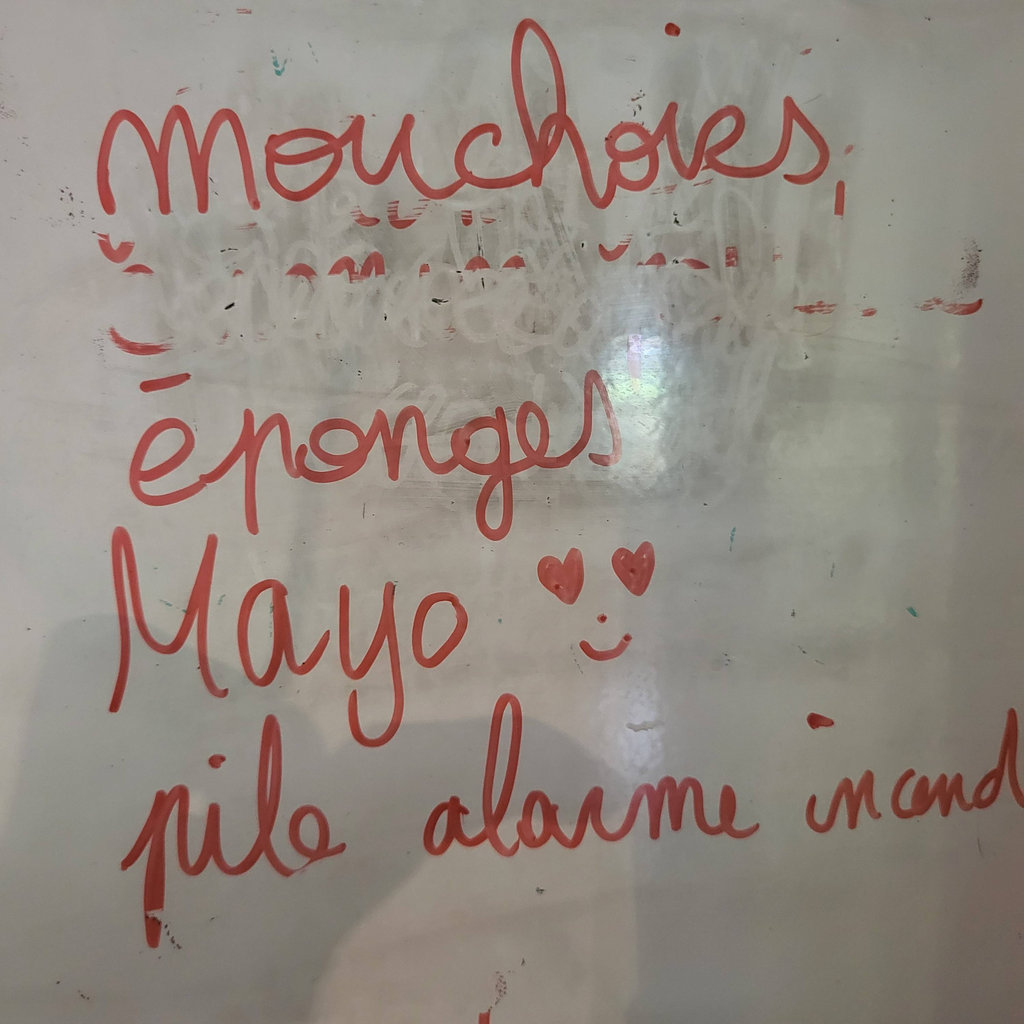 mouchoirs
éponges
Mayo
pile alarme incend